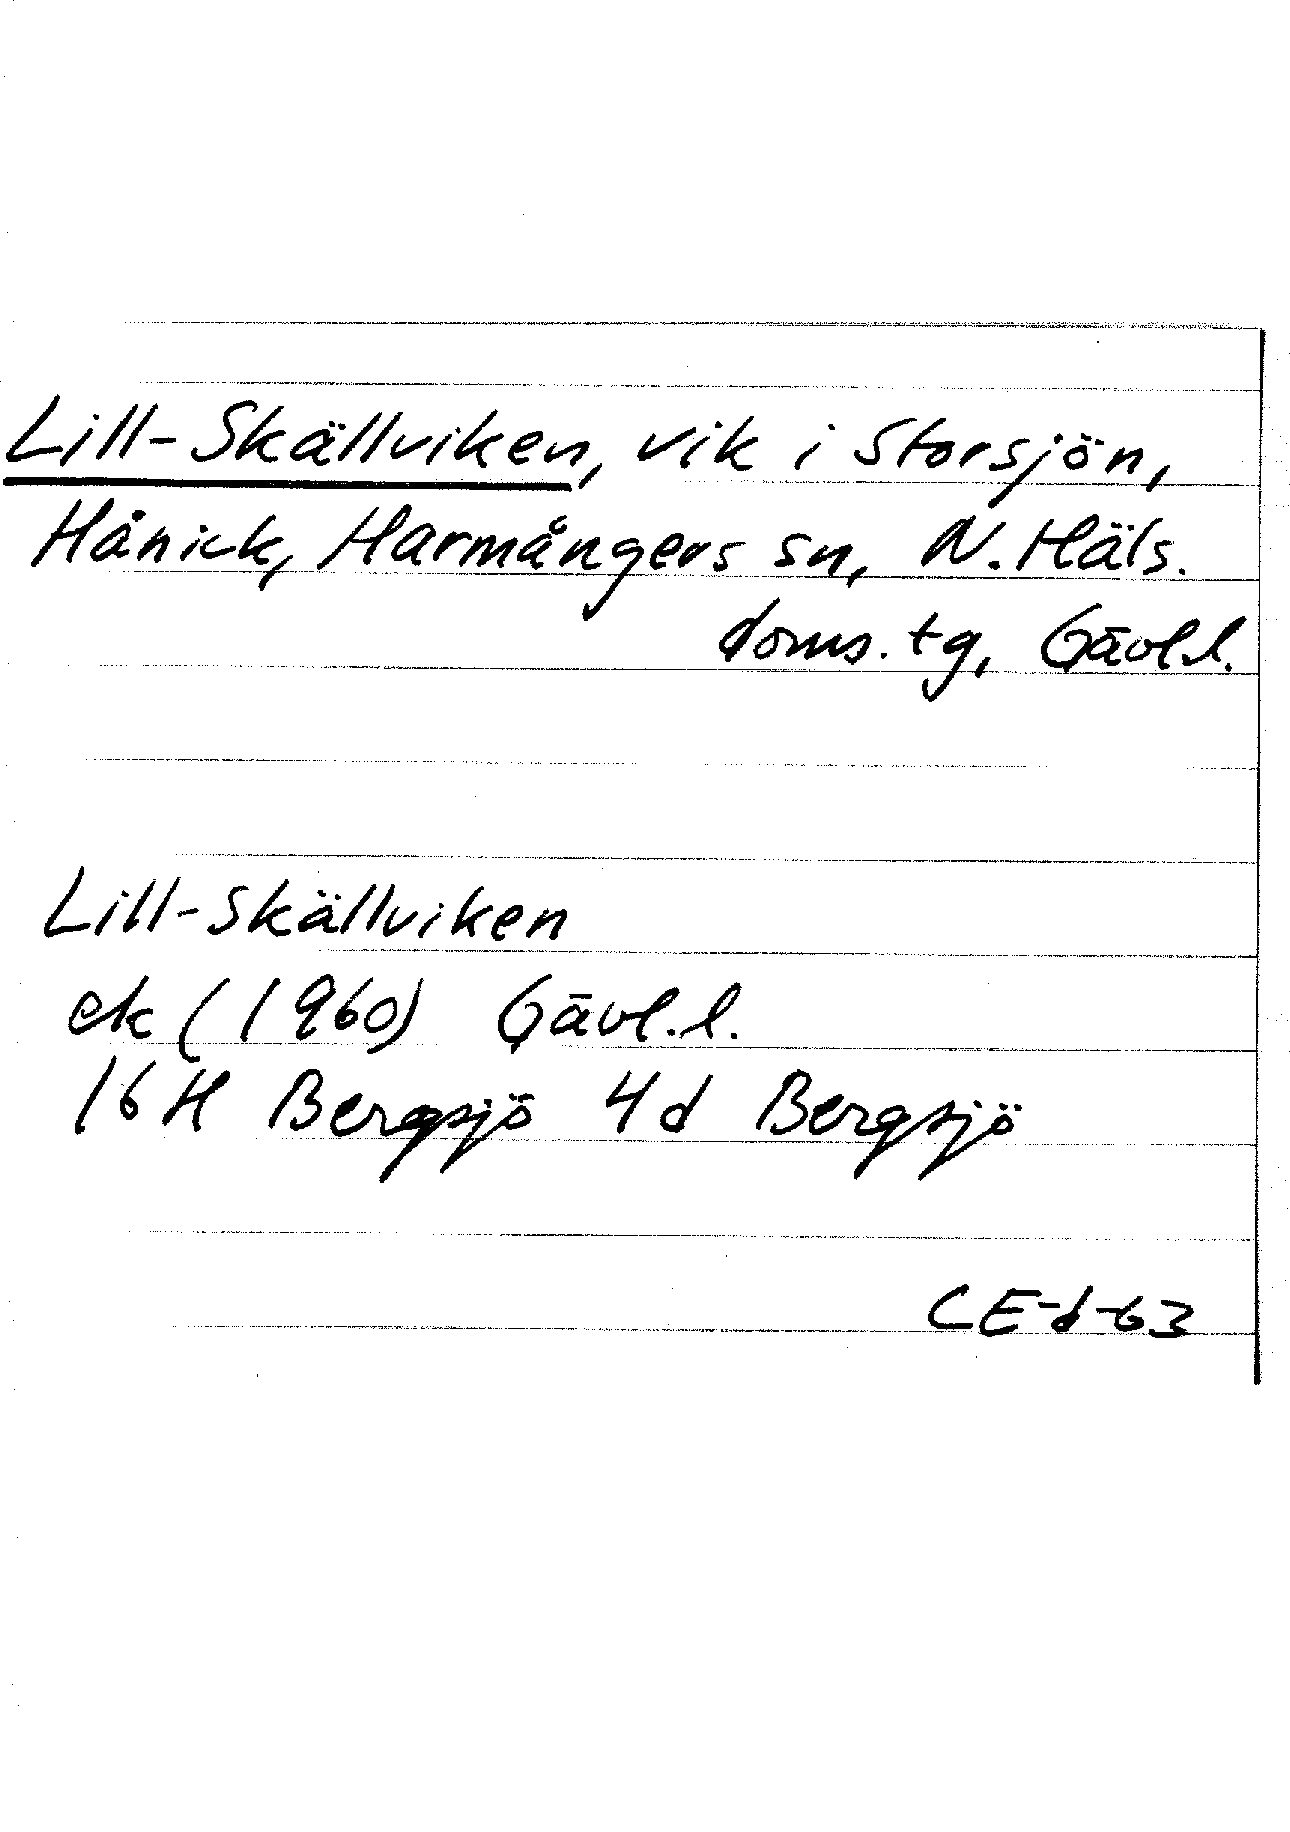 Lill-Skällviken, vik i Storsjön,
Hånick, Harmångers sn, N. Häls.
doms. tg, Gävl.l.
Lill-Skällviken
ek (1960) Gävl.l.
16 H Bergsjö 4d Bergsjö
CE-d-63